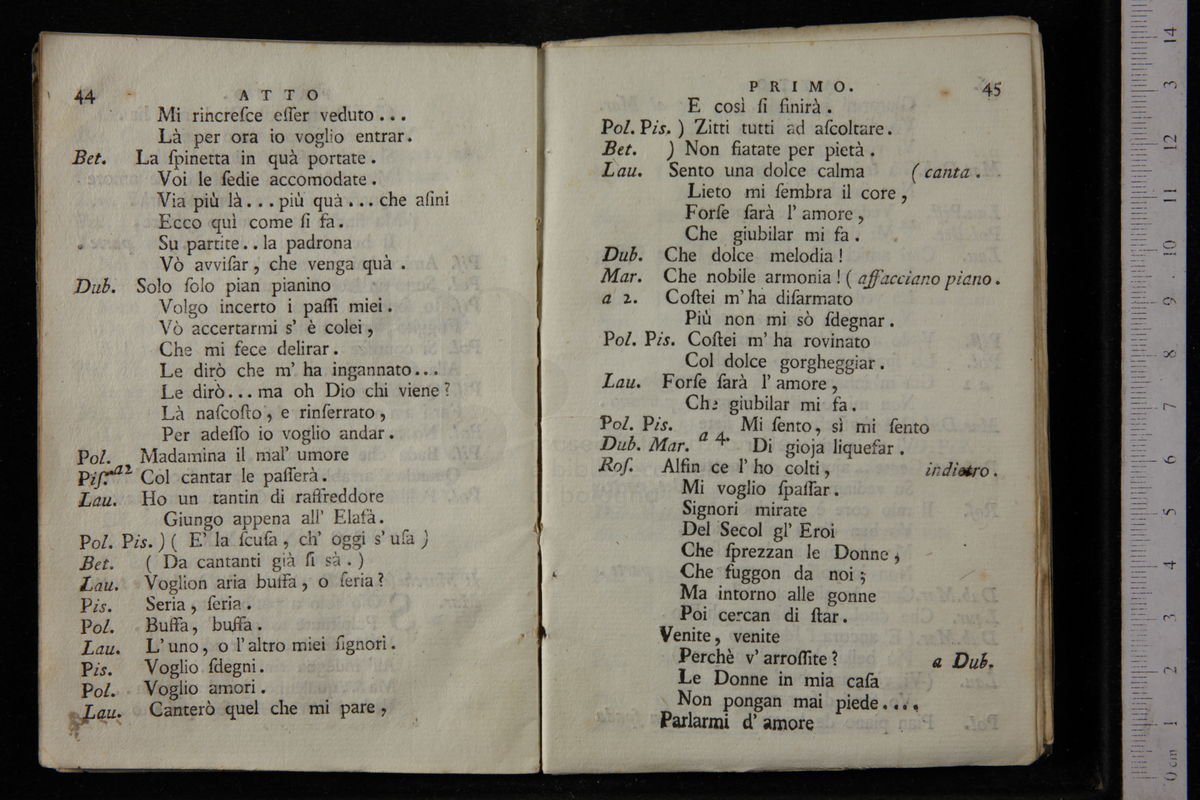 44 ATTO
Mi rincreſce eſſer veduto...
Là per ora io voglio entrar.
Bet. La ſpinetta in quà portate.
Voi le ſedie accomodate.
Via più là...più quà...che aſini
Ecco quì come ſi fa.
Su partite..la padrona
Vò avviſar, che venga quà.
Dub. Solo ſolo pian pianino
Volgo incerto i paſſi miei.
Vò accertarmi s' è colei,
Che mi fece delirar.
Le dirò che m' ha ingannato...
Le dirò...ma oh Dio chi viene?
Là naſcoſto, e rinſerrato,
Per adeſſo io voglio andar.
Pol. Madamina il mal' umore
Piſ. a2 Col cantar le paſſerà.
Lau. Ho un tantin di raffreddore
Giungo appena all' Elafà.
Pol. Pis. ) ( E' la ſcuſa, ch' oggi s' uſa )
Bet. ( Da cantanti già ſi sà. )
Lau. Voglion aria buffa, o ſeria?
Pis. Seria, ſeria.
Pol. Buffa, buffa.
Lau. L' uno, o l' altro miei ſignori.
Pis. Voglio ſdegni.
Pol. Voglio amori.
Lau. Canterò quel che mi pare,
PRIMO. 45
E così ſi finirà.
Pol. Pis. ) Zitti tutti ad aſcoltare.
Bet. ) Non fiatate per pietà.
Lau. Sento una dolce calma ( canta.
Lieto mi ſembra il core,
Forſe ſarà l' amore,
Che giubilar mi fa.
Dub. Che dolce melodia!
Mar. Che nobile armonia! ( affacciano piano.
a 2. Coſtei m' ha diſarmato
Più non mi sò ſdegnar.
Pol. Pis. Coſtei m' ha rovinato
Col dolce gorgheggiar.
Lau. Forſe ſarà l' amore,
Che giubilar mi fa.
Pol. Pis. Mi ſento, sì mi ſento
Dub. Mar. a 4. Di gioja liquefar.
Roſ. Alfin ce l' ho colti, indietro.
Mi voglio ſpaſſar.
Signori mirate
Del Secol gl' Eroi
Che ſprezzan le Donne,
Che fuggon da noi;
Ma intorno alle gonne
Poi cercan di ſtar.
Venite, venite
Perchè v' arroſſite? a Dub.
Le Donne in mia caſa
Non pongan mai piede....
Parlarmi d' amore
0 cm 1 2 3 4 5 6 7 8 9 10 11 12 3 14